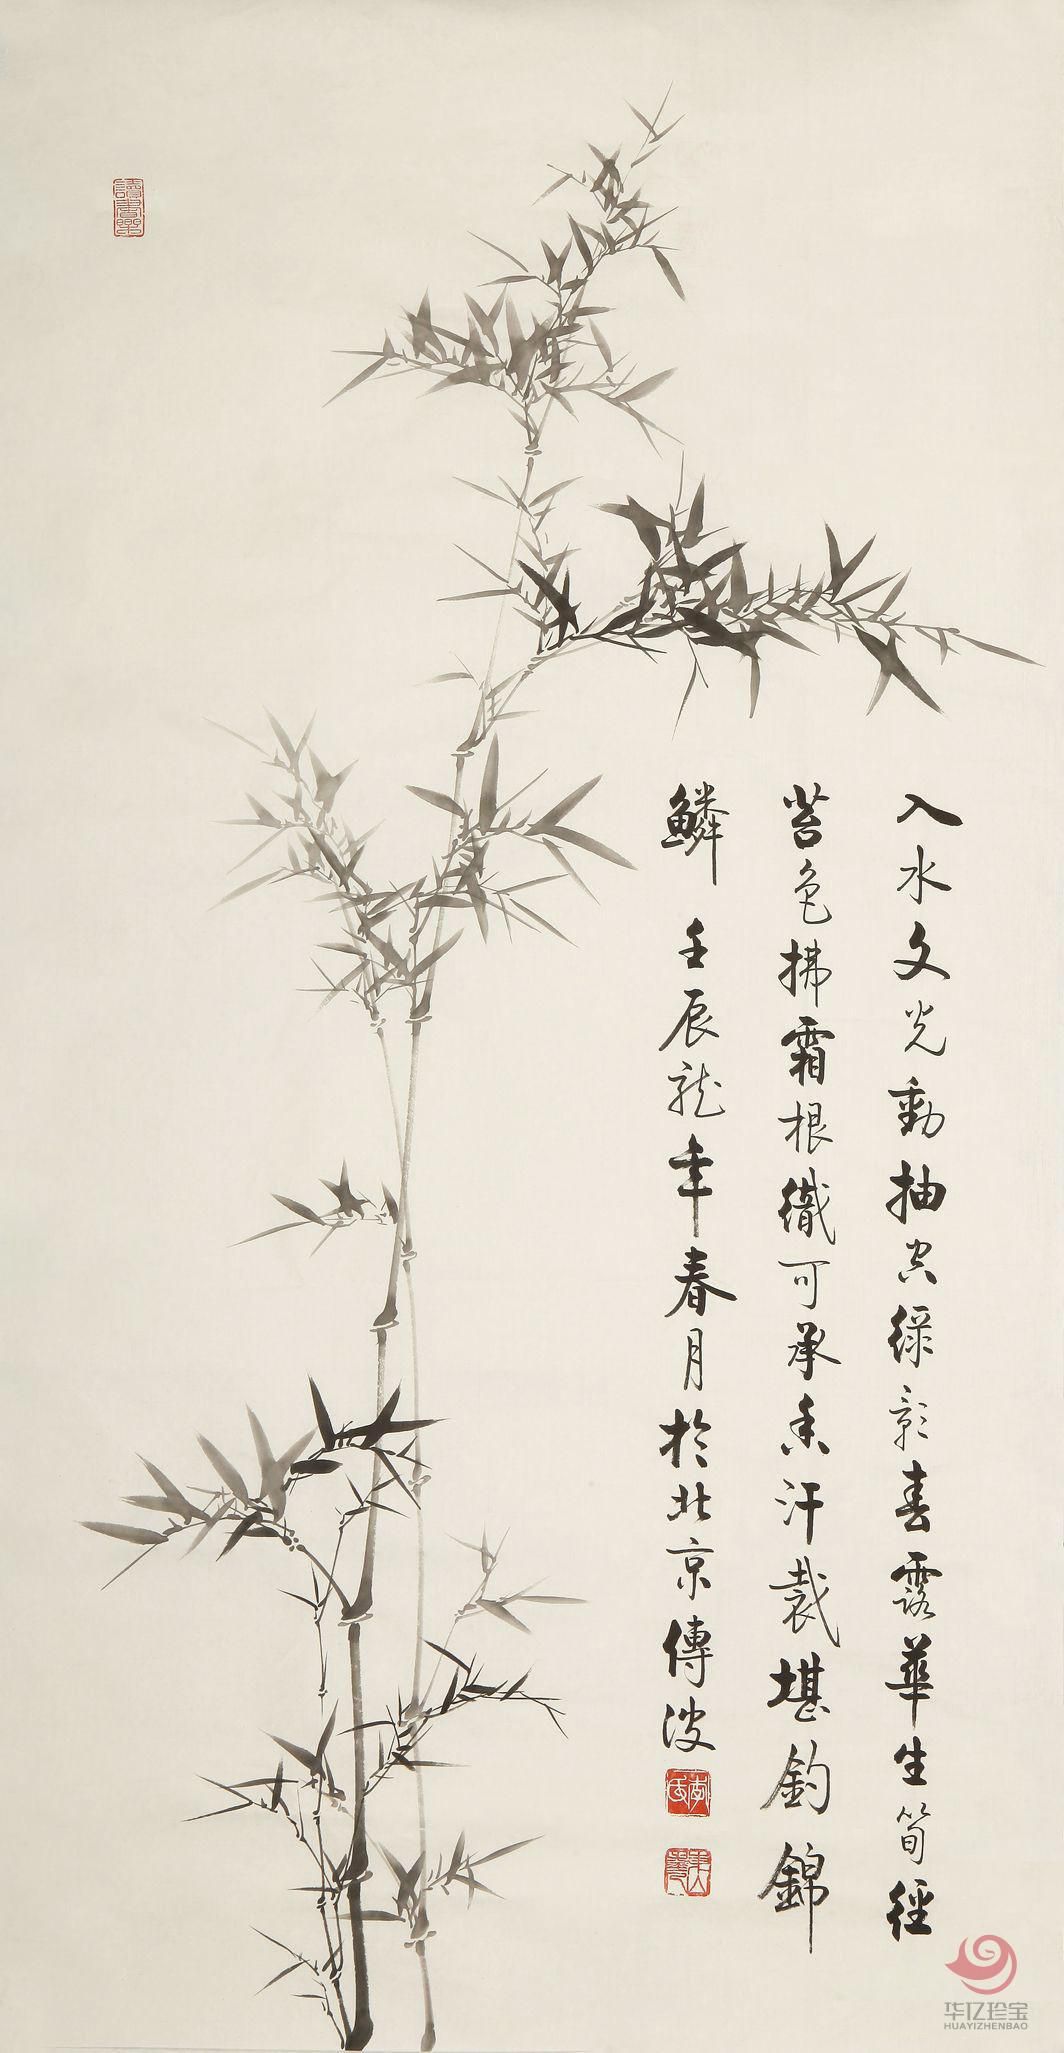 入水文光動抽空綠影春露華生筍徑
苔色拂霜根織可承香汗裁堪釣錦
鱗 壬辰龍年春月於北京傳波
讀書樂
李氏
华亿珍宝
HUAYIZHENBAO